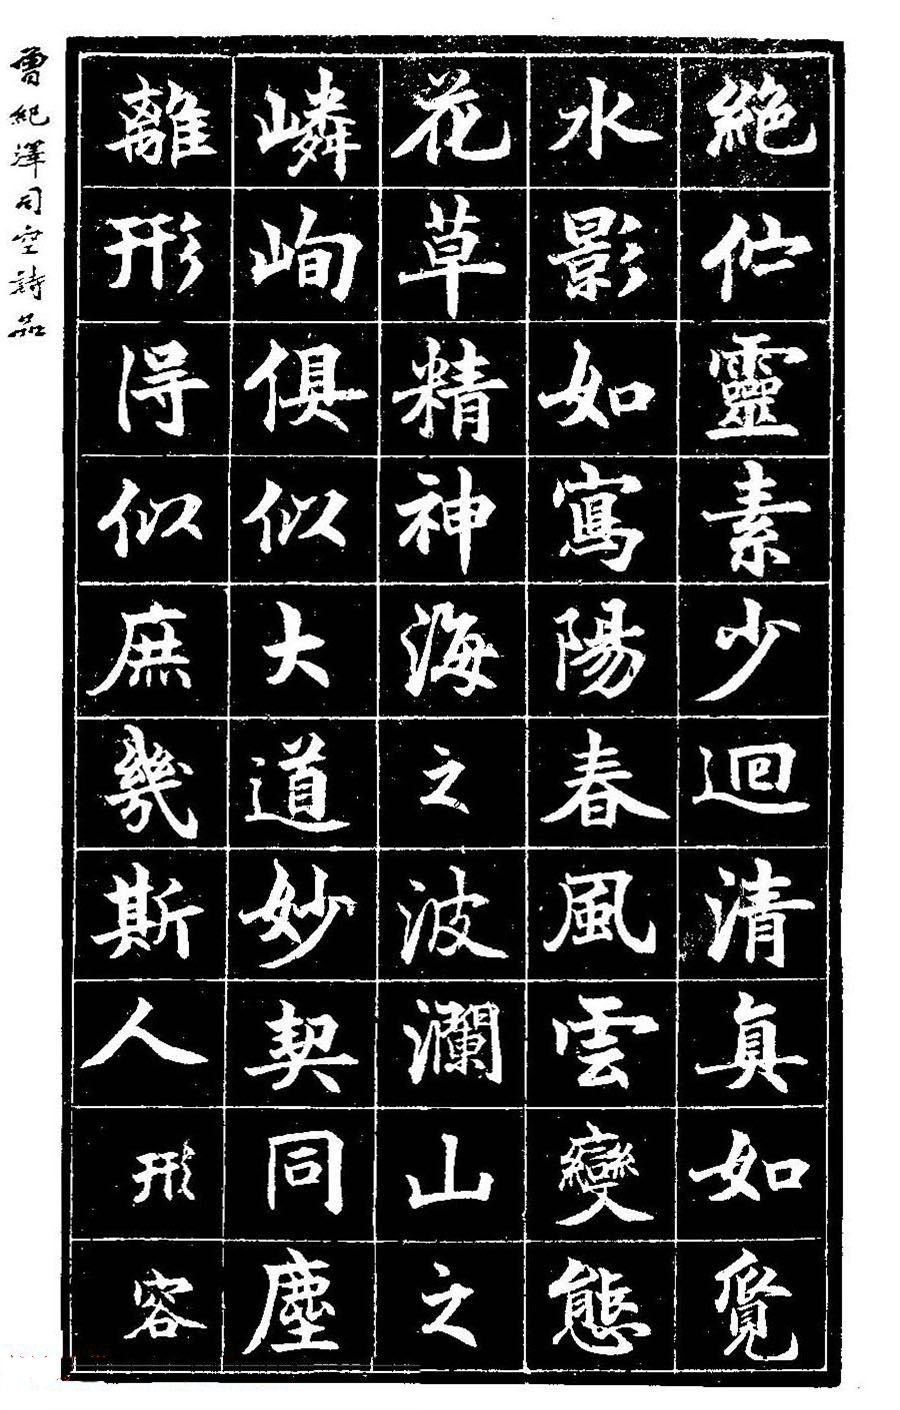 絶佇靈素少迴清真如覓
水影如寫陽春風雲變態
花草精神海之波瀾山之
嶙峋俱似大道妙契同塵
離形得似庶幾斯人形容
曾紀澤司空詩品